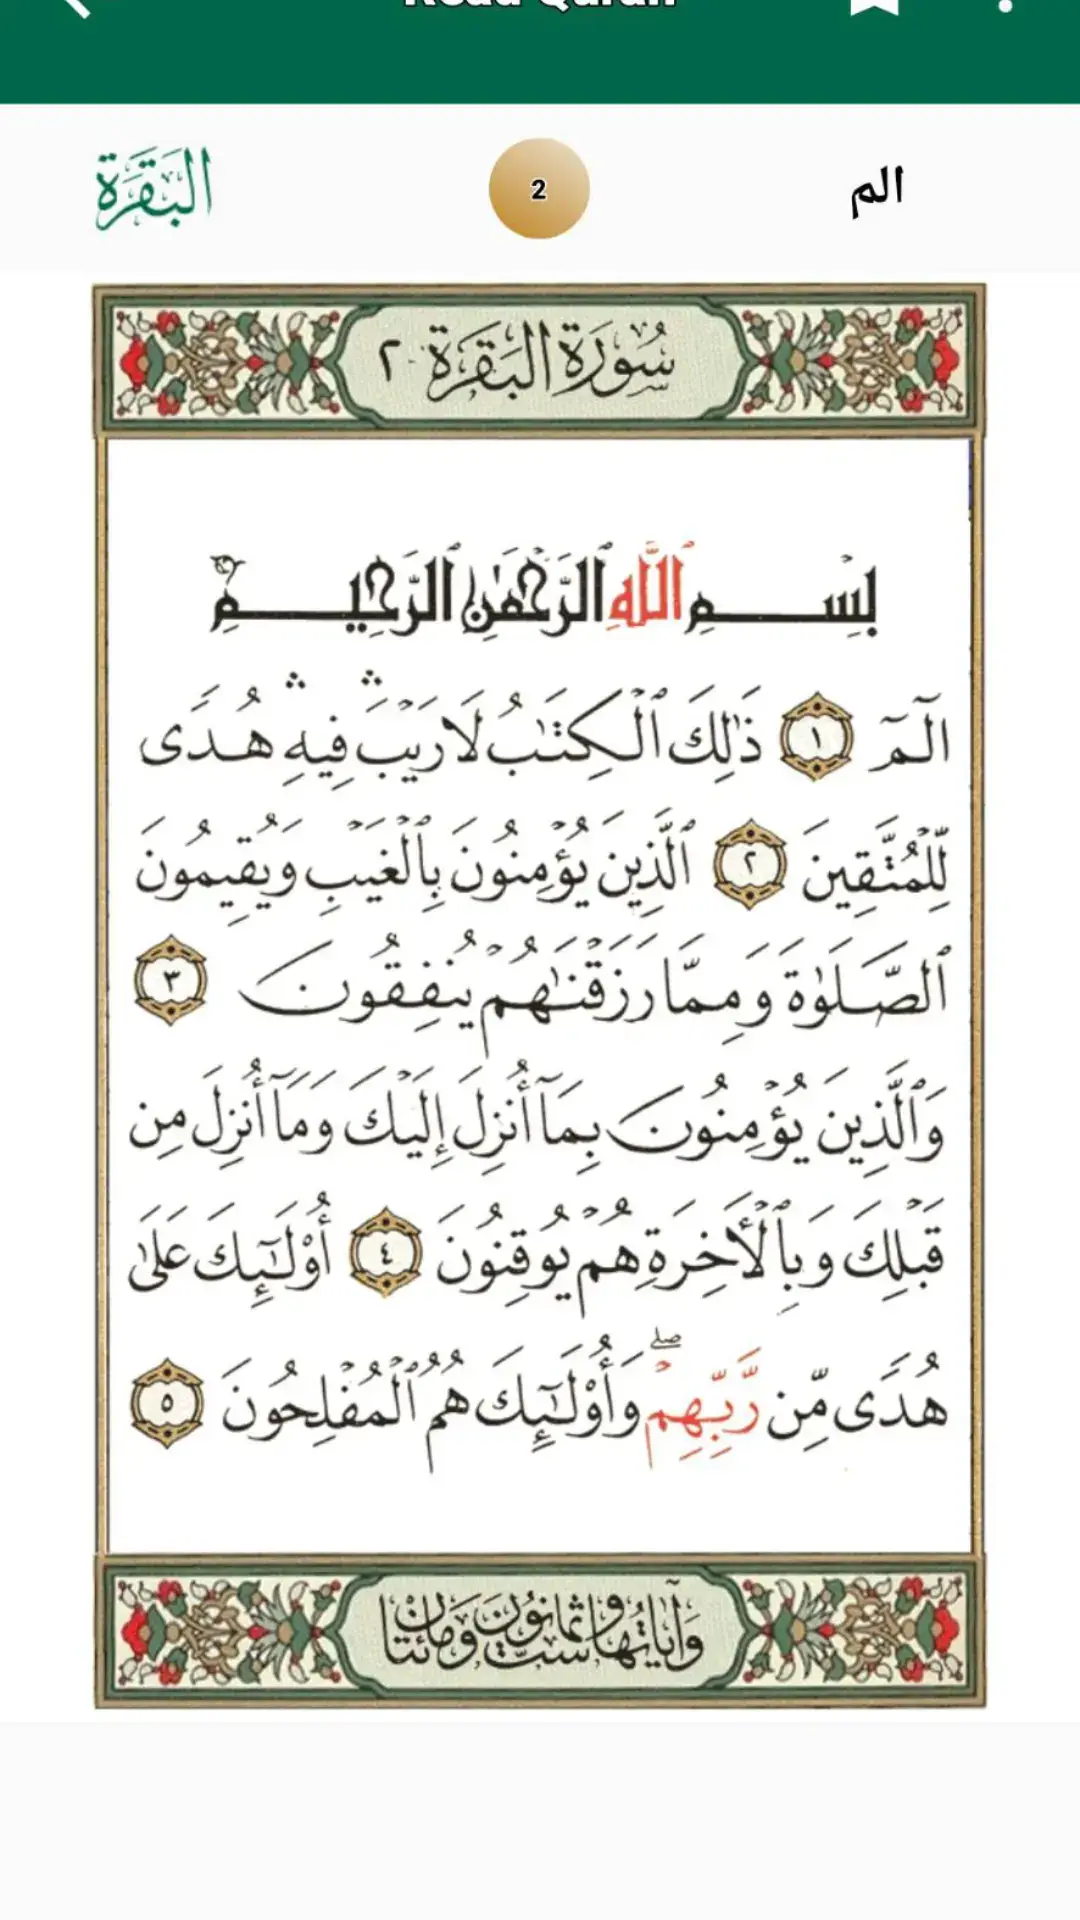 Read Quran
البقرة
2
الم
سُورَةُ البَقَرَة ٢
بِسْمِ ٱللَّهِ ٱلرَّحْمَٰنِ ٱلرَّحِيمِ
الٓمٓ ١ ذَٰلِكَ ٱلْكِتَٰبُ لَا رَيْبَ ۛ فِيهِ ۛ هُدًى
لِّلْمُتَّقِينَ ٢ ٱلَّذِينَ يُؤْمِنُونَ بِٱلْغَيْبِ وَيُقِيمُونَ
ٱلصَّلَوٰةَ وَمِمَّا رَزَقْنَٰهُمْ يُنفِقُونَ ٣
وَٱلَّذِينَ يُؤْمِنُونَ بِمَآ أُنزِلَ إِلَيْكَ وَمَآ أُنزِلَ مِن
قَبْلِكَ وَبِٱلْأَخِرَةِ هُمْ يُوقِنُونَ ٤ أُوْلَٰٓئِكَ عَلَىٰ
هُدًى مِّن رَّبِّهِمْ ۖ وَأُوْلَٰٓئِكَ هُمُ ٱلْمُفْلِحُونَ ٥
وَآيَاتُهَا سِتٌّ وَثَمَانُونَ وَمَائَتَانِ